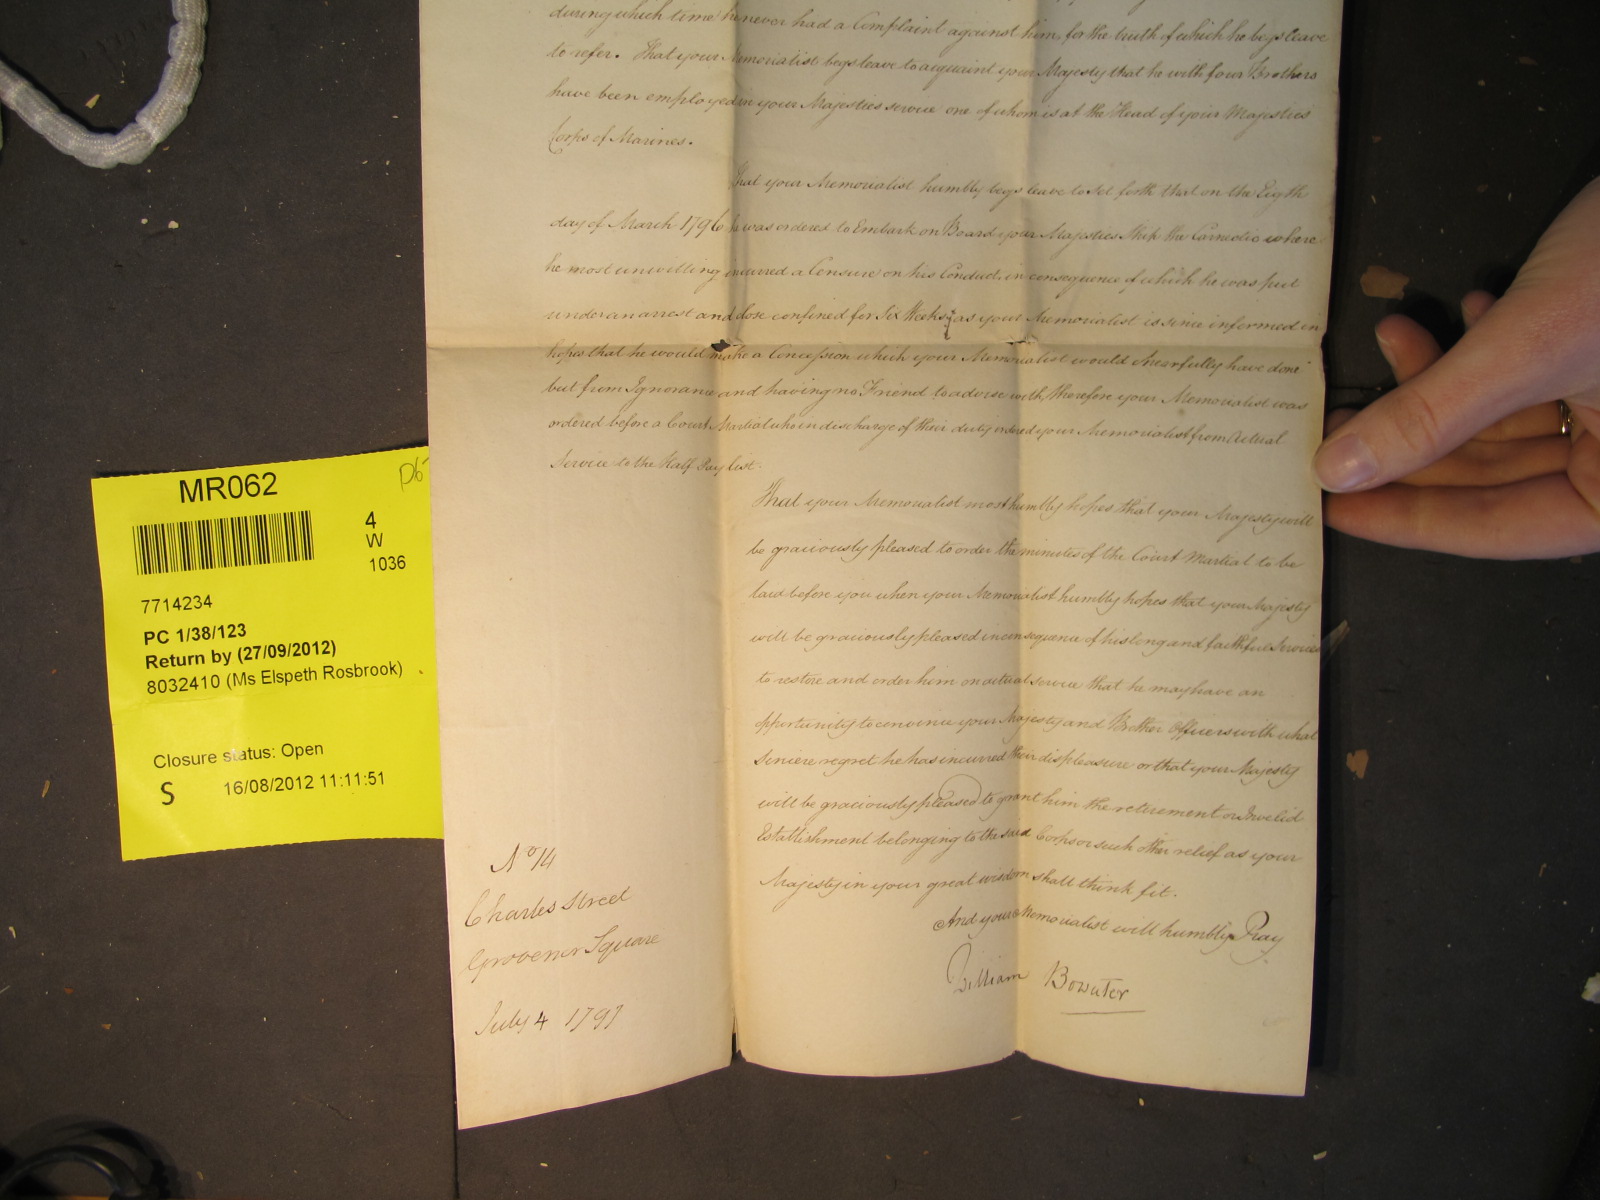 during which time he never had a Complaint against him, for the truth of which he begs leave
to refer. That your Memorialist begs leave to acquaint your Majesty that he with four Brothers
have been employed in your Majesties service one of whom is at the Head of your Majesties
Corps of Marines.
That your Memorialist humbly begs leave to set forth that on the Eigth
day of March 1796 he was ordered to Embark on Board your Majesties Ship the Carnatic where
he most unwilling incurred a Censure on his Conduct, in consequence of which he was put
under an arrest and close confined for Six Weeks, as your Memorialist is since informed in
hopes that he would make a Concession which your Memorialist would chearfully have done
but from Ignorance and having no Friend to advise with, therefore your Memorialist was
ordered before a Court Martial who in discharge of their duty ordered your Memorialist from Actual
Service to the Half Pay list.
That your Memorialist most humbly hopes that your Majesty will
be graciously pleased to order the minutes of the Court Martial to be
laid before you when your Memorialist humbly hopes that your Majesty
will be graciously pleased in consequence of his long and faithful Services
to restore and order him on actual service that he may have an
oppertunity to convince your Majesty and Brother Officers with what
sincere regret he has incurred their displeasure or that your Majesty
will be graciously pleased to grant him the retirement or Invelid
Establishment belonging to the said Corps or such other relief as your
Majesty in your great wisdom shall think fit.
And your Memorialist will humbly Pray
William Bowater
No 14
Charles Street
Grovener Square
July 4 1797
MR062
4
W
1036
7714234
PC 1/38/123
Return by (27/09/2012)
8032410 (Ms Elspeth Rosbrook)
Closure status: Open
S 16/08/2012 11:11:51